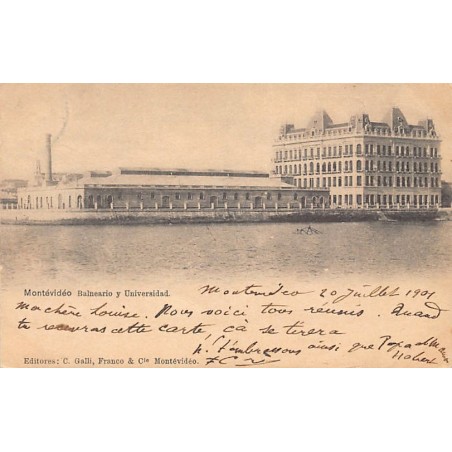 Montévidéo Balneario y Universidad.
Montevidéo 20 Juillet 1901
Ma chère Louise. Nous voici tous réunis. Quand
tu recevras cette carte, ça se terera
t'embrassons ainsi que Papa et Maman
Editores: C. Galli, Franco & Cie Montévidéo.